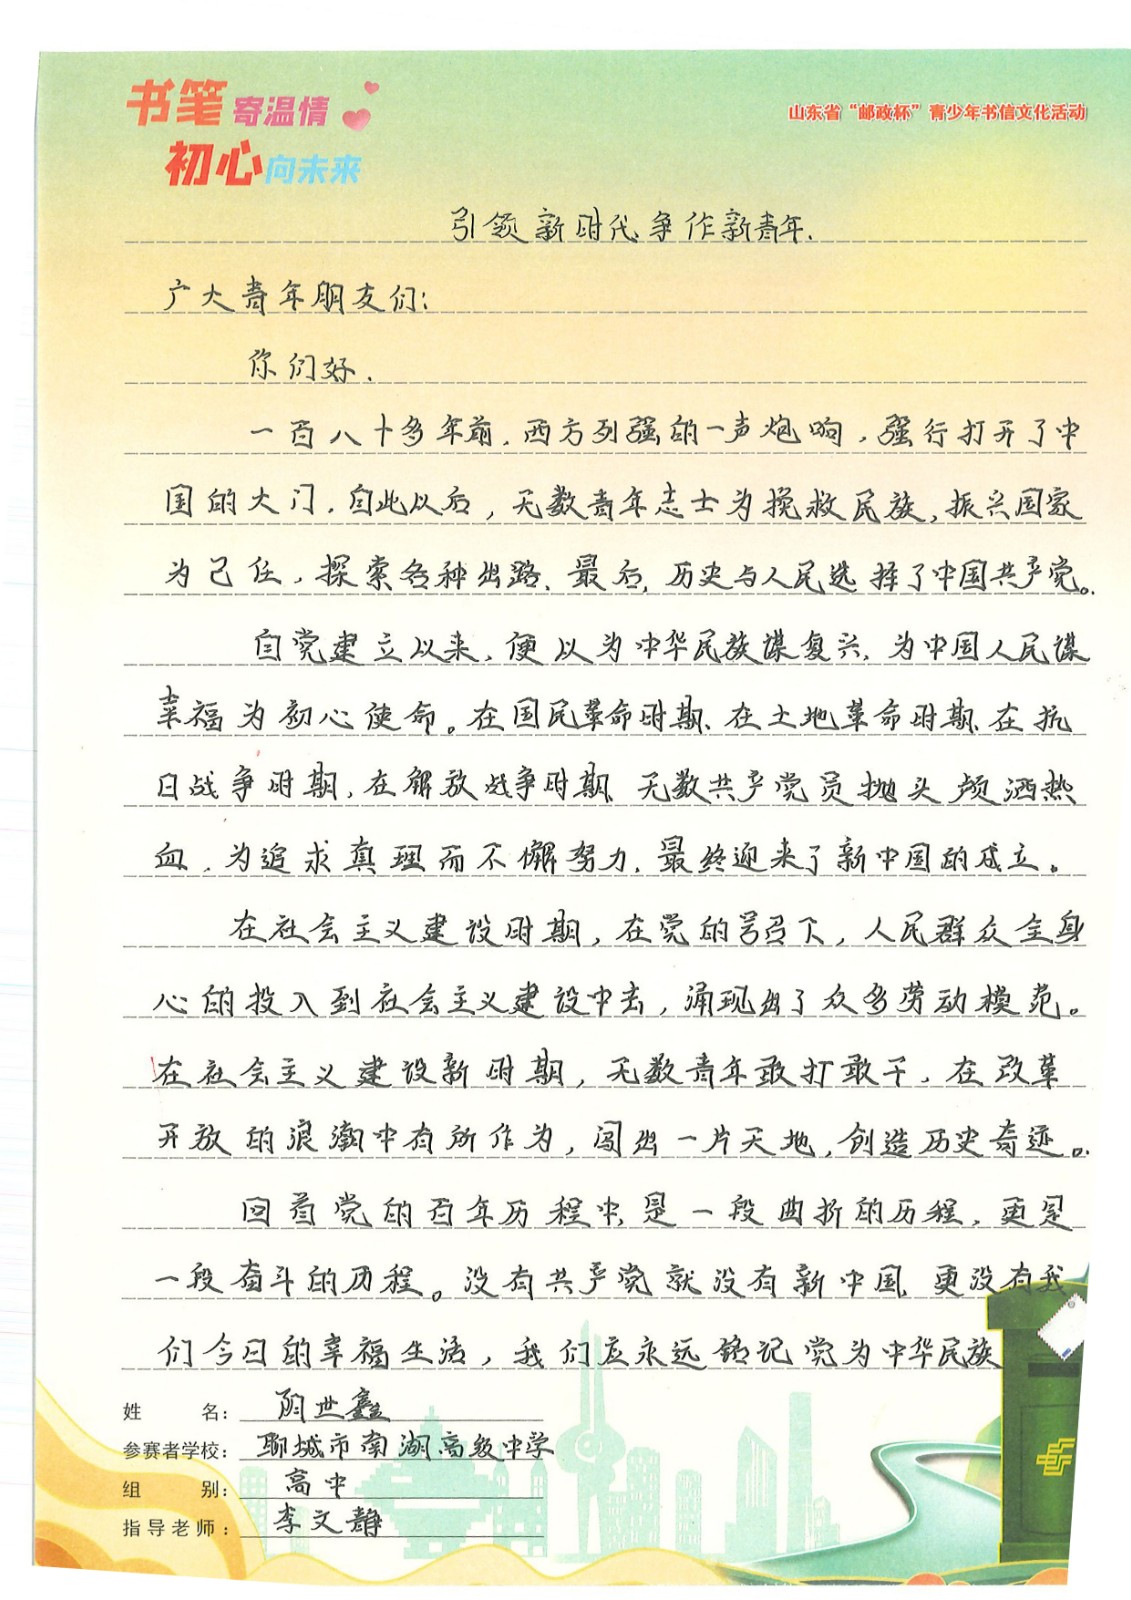 书笔寄温情
初心向未来
山东省“邮政杯”青少年书信文化活动
引领新时代争作新青年.
广大青年朋友们：
你们好.
一百八十多年前.西方列强的一声炮响,强行打开了中
国的大门.自此以后,无数青年志士为挽救民族,振兴国家
为己任,探索各种出路.最后,历史与人民选择了中国共产党。
自党建立以来,便以为中华民族谋复兴.为中国人民谋
幸福为初心使命。在国民革命时期、在土地革命时期.在抗
日战争时期,在解放战争时期、无数共产党员抛头颅洒热
血.为追求真理而不懈努力.最终迎来了新中国的成立。
在社会主义建设时期,在党的号召下,人民群众全身
心的投入到社会主义建设中去,涌现出了众多劳动模范。
在社会主义建设新时期,无数青年敢打敢干.在改革
开放的浪潮中有所作为,闯出一片天地,创造历史奇迹。
回首党的百年历程中,是一段曲折的历程.更是
一段奋斗的历程。没有共产党就没有新中国.更没有我
们今日的幸福生活,我们应永远铭记党为中华民族
姓名：阴世鑫
参赛者学校：聊城市南湖高级中学
组别：高中
指导老师：李文静